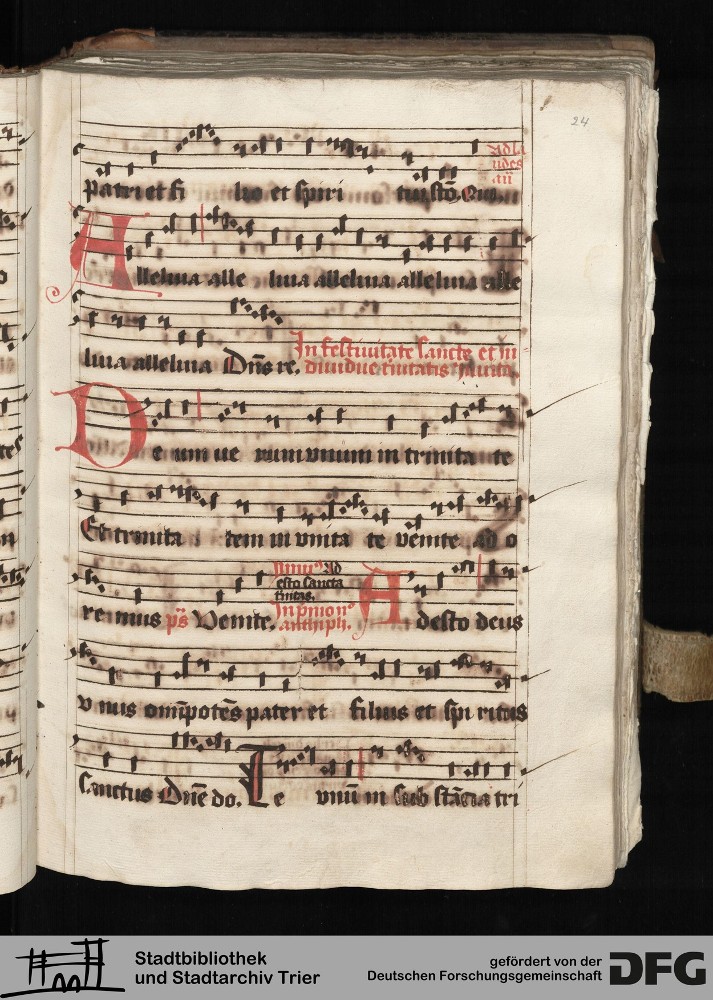 24
patri et fi lio et spiri tui sctō.
Ad la
udes
añ
Alleluia alle luia alleluia alleluia alle
luia alleluia Dn̄s re.
In festiuitate sancte et in
diuidue tinitatis
Deum ue rum vnum in trinita te
Et trinita tem in vnita te venite ad o
re mus ps̄ Venite.
Ad
esto sancta
tinitas.
In pͥmo noͨ
antiph.
Adesto deus
vnus omīpotēs pater et filius et spi ritus
sanctus Dn̄e do. Te vnū in sub stācia tri
Stadtbibliothek
und Stadtarchiv Trier
gefördert von der
Deutschen Forschungsgemeinschaft
DFG